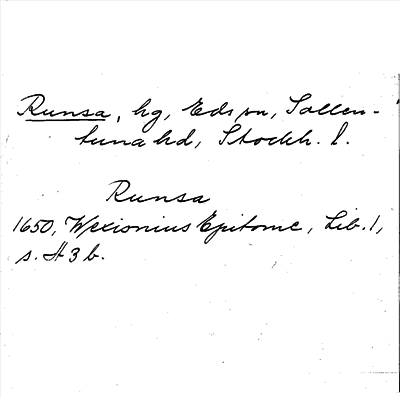 Runsa, hg, Eds sn, Sollen-
tuna hd, Stockh. l.
Runsa
1650, Wexionius Epitome, Lib. 1,
s. H 3 b.